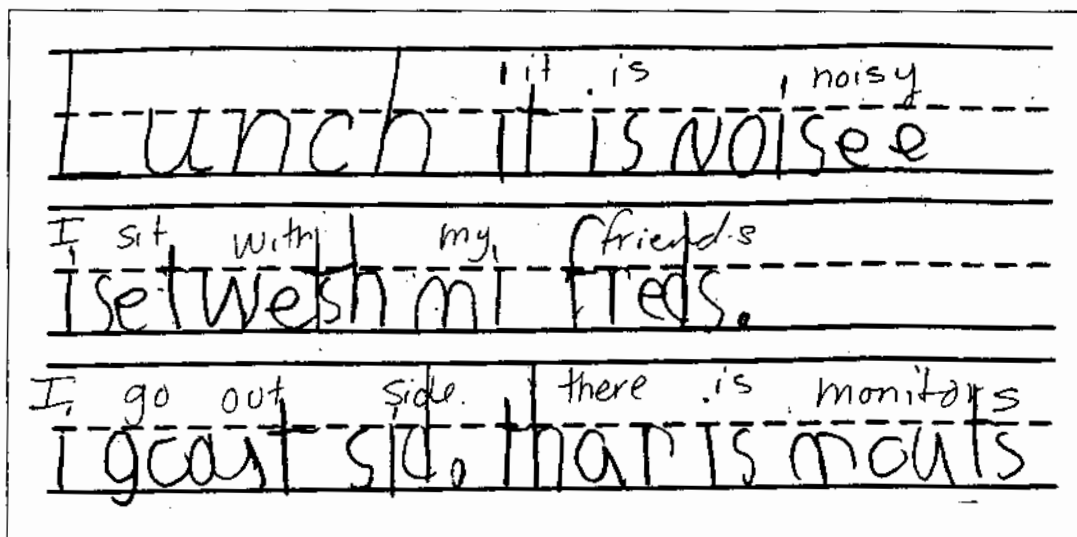 it is noisy
Lunch it is Noisee
I sit with my friends
i set wesh mi freds.
I go out side. there is monitors
i gowt sid. thar is mouts